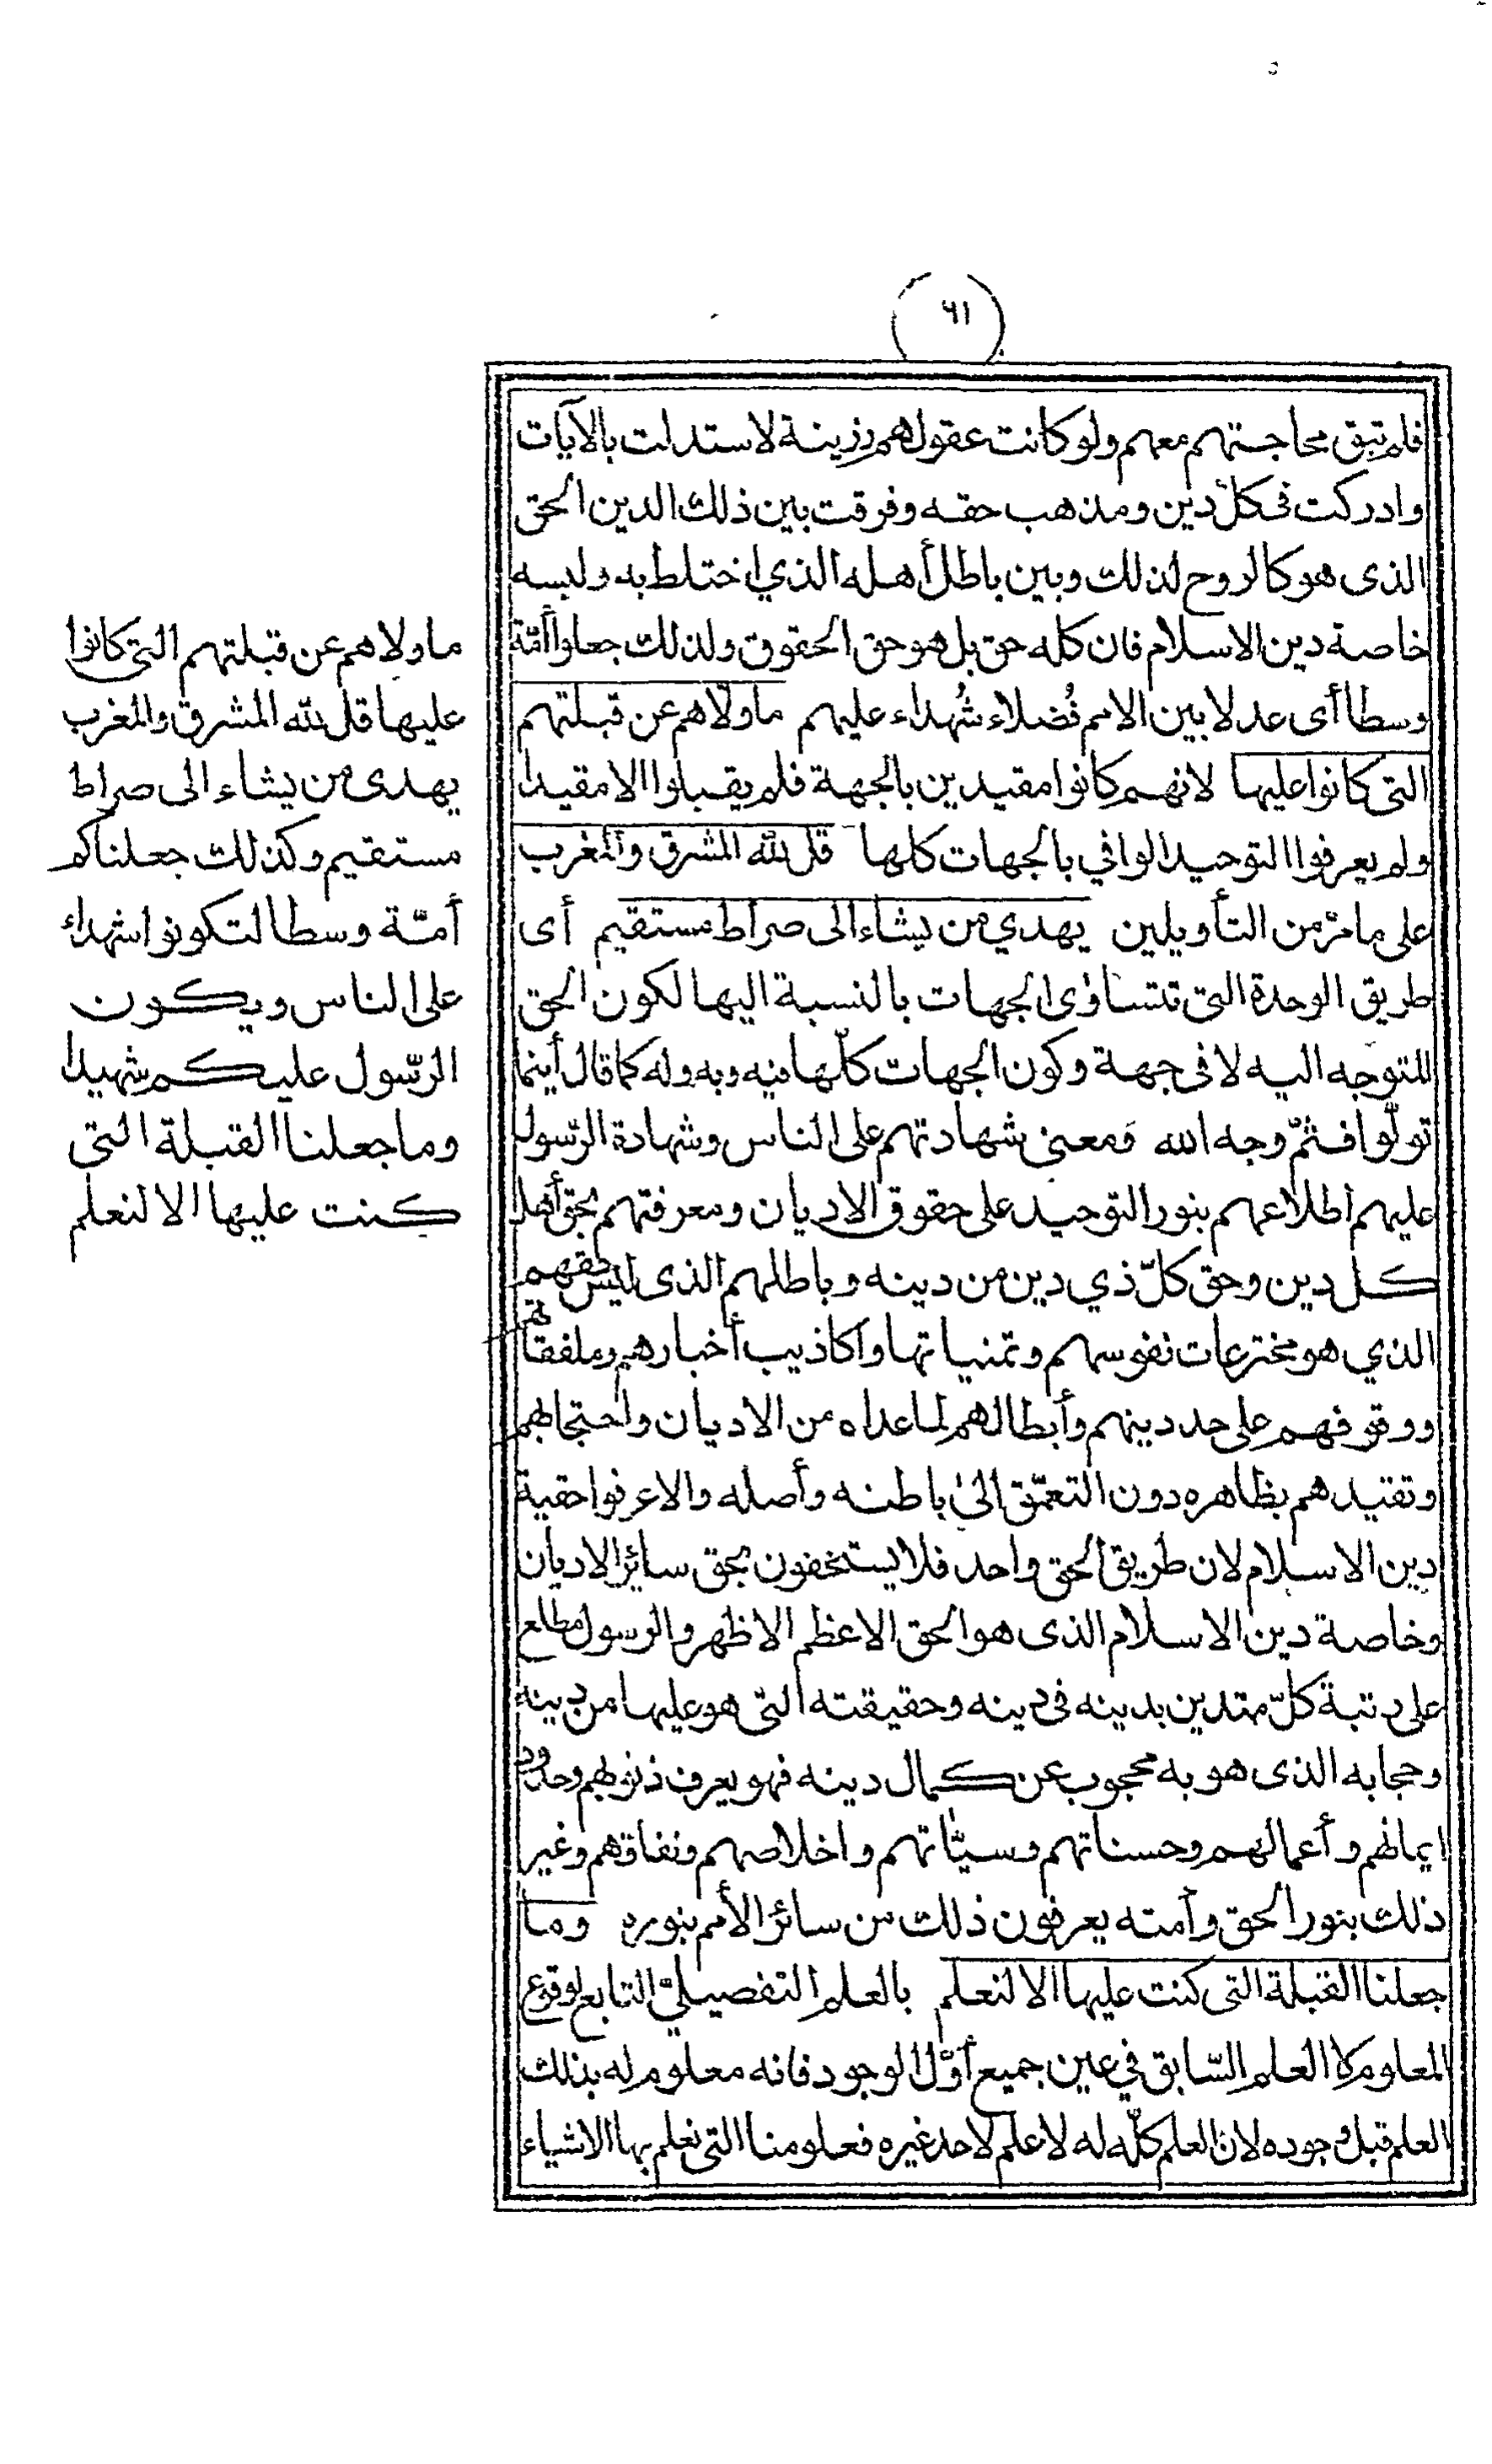 ٦١
فلم تبق محاجتهم معهم ولو كانت عقولهم رزينة لاستدلت بالآيات
وادركت فى كل دين ومذهب حقه وفرقت بين ذلك الدين الحق
الذى هو كالروح لذلك وبين باطل أهله الذي اختلط به ولبسه
خاصة دين الاسلام فان كله حق بل هو حق الحقوق ولذلك جعلوا أمّة
وسطا أى عدلا بين الامم فُضلاء شُهداء عليهم ماولّاهم عن قبلتهم
التى كانوا عليها لانهم كانوا مقيدين بالجهة فلم يقبلوا الا مقيدا
ولم يعرفوا التوحيد الوافي بالجهات كلها قل لله المشرق والمغرب
على مامرّ من التأويلين يهدي من يشاء الى صراط مستقيم أى
طريق الوحدة التى تتساوى الجهات بالنسبة اليها لكون الحق
المتوجه اليه لا فى جهة وكون الجهات كلّها فيه وبه وله كما قال أينما
تولّوا فثمّ وجه الله ومعنى شهادتهم على الناس وشهادة الرّسول
عليهم اطلاعهم بنور التوحيد على حقوق الاديان ومعرفتهم بحق أهل
كل دين وحق كلّ ذي دين من دينه وباطلهم الذى ليس حقهم
الذي هو مخترعات نفوسهم وتمنياتها وأكاذيب أخبارهم وملفقاتهم
ووقوفهم على حد دينهم وأبطالهم لما عداه من الاديان واحتجابهم
وتقيدهم بظاهره دون التعمّق الى باطنه وأصله والا عرفوا حقية
دين الاسلام لان طريق الحق واحد فلا يستخفون بحق سائر الاديان
وخاصة دين الاسلام الذى هو الحق الاعظم الاظهر والرسول مطلع
على رتبة كلّ متدين بدينه فى دينه وحقيقته التى هو عليها من دينه
وحجابه الذى هو به محجوب عن كمال دينه فهو يعرف ذنوبهم وحدود
ايمانهم وأعمالهم وحسناتهم وسيّآتهم واخلاصهم ونفاقهم وغير
ذلك بنور الحق وأمته يعرفون ذلك من سائر الأمم بنوره وما
جعلنا القبلة التى كنت عليها الا لنعلم بالعلم التفصيليّ التابع لوقوع
المعلوم لا العلم السّابق في عين جميع أوّل الوجود فانه معلوم له بذلك
العلم قبل وجوده لان العلم كلّه له لا علم لاحد غيره فعلومنا التى نعلم بها الاشياء
ماولاهم عن قبلتهم التى كانوا
عليها قل لله المشرق والمغرب
يهدى من يشاء الى صراط
مستقيم وكذلك جعلناكم
أمّة وسطا لتكونوا شهداء
على الناس ويكون
الرّسول عليكم شهيدا
وما جعلنا القبلة التى
كنت عليها الا لنعلم